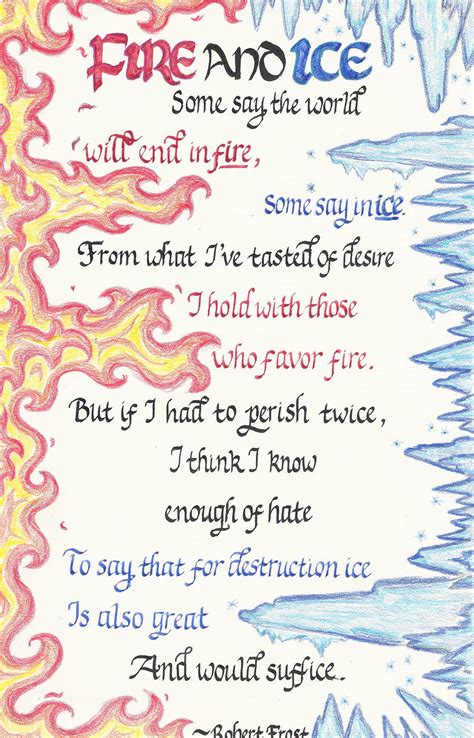 FIRE AND ICE
Some say the world
will end in fire,
Some say in ice.
From what I've tasted of desire
I hold with those
who favor fire.
But if I had to perish twice,
I think I know
enough of hate
To say that for destruction ice
Is also great
And would suffice.
~Robert Frost